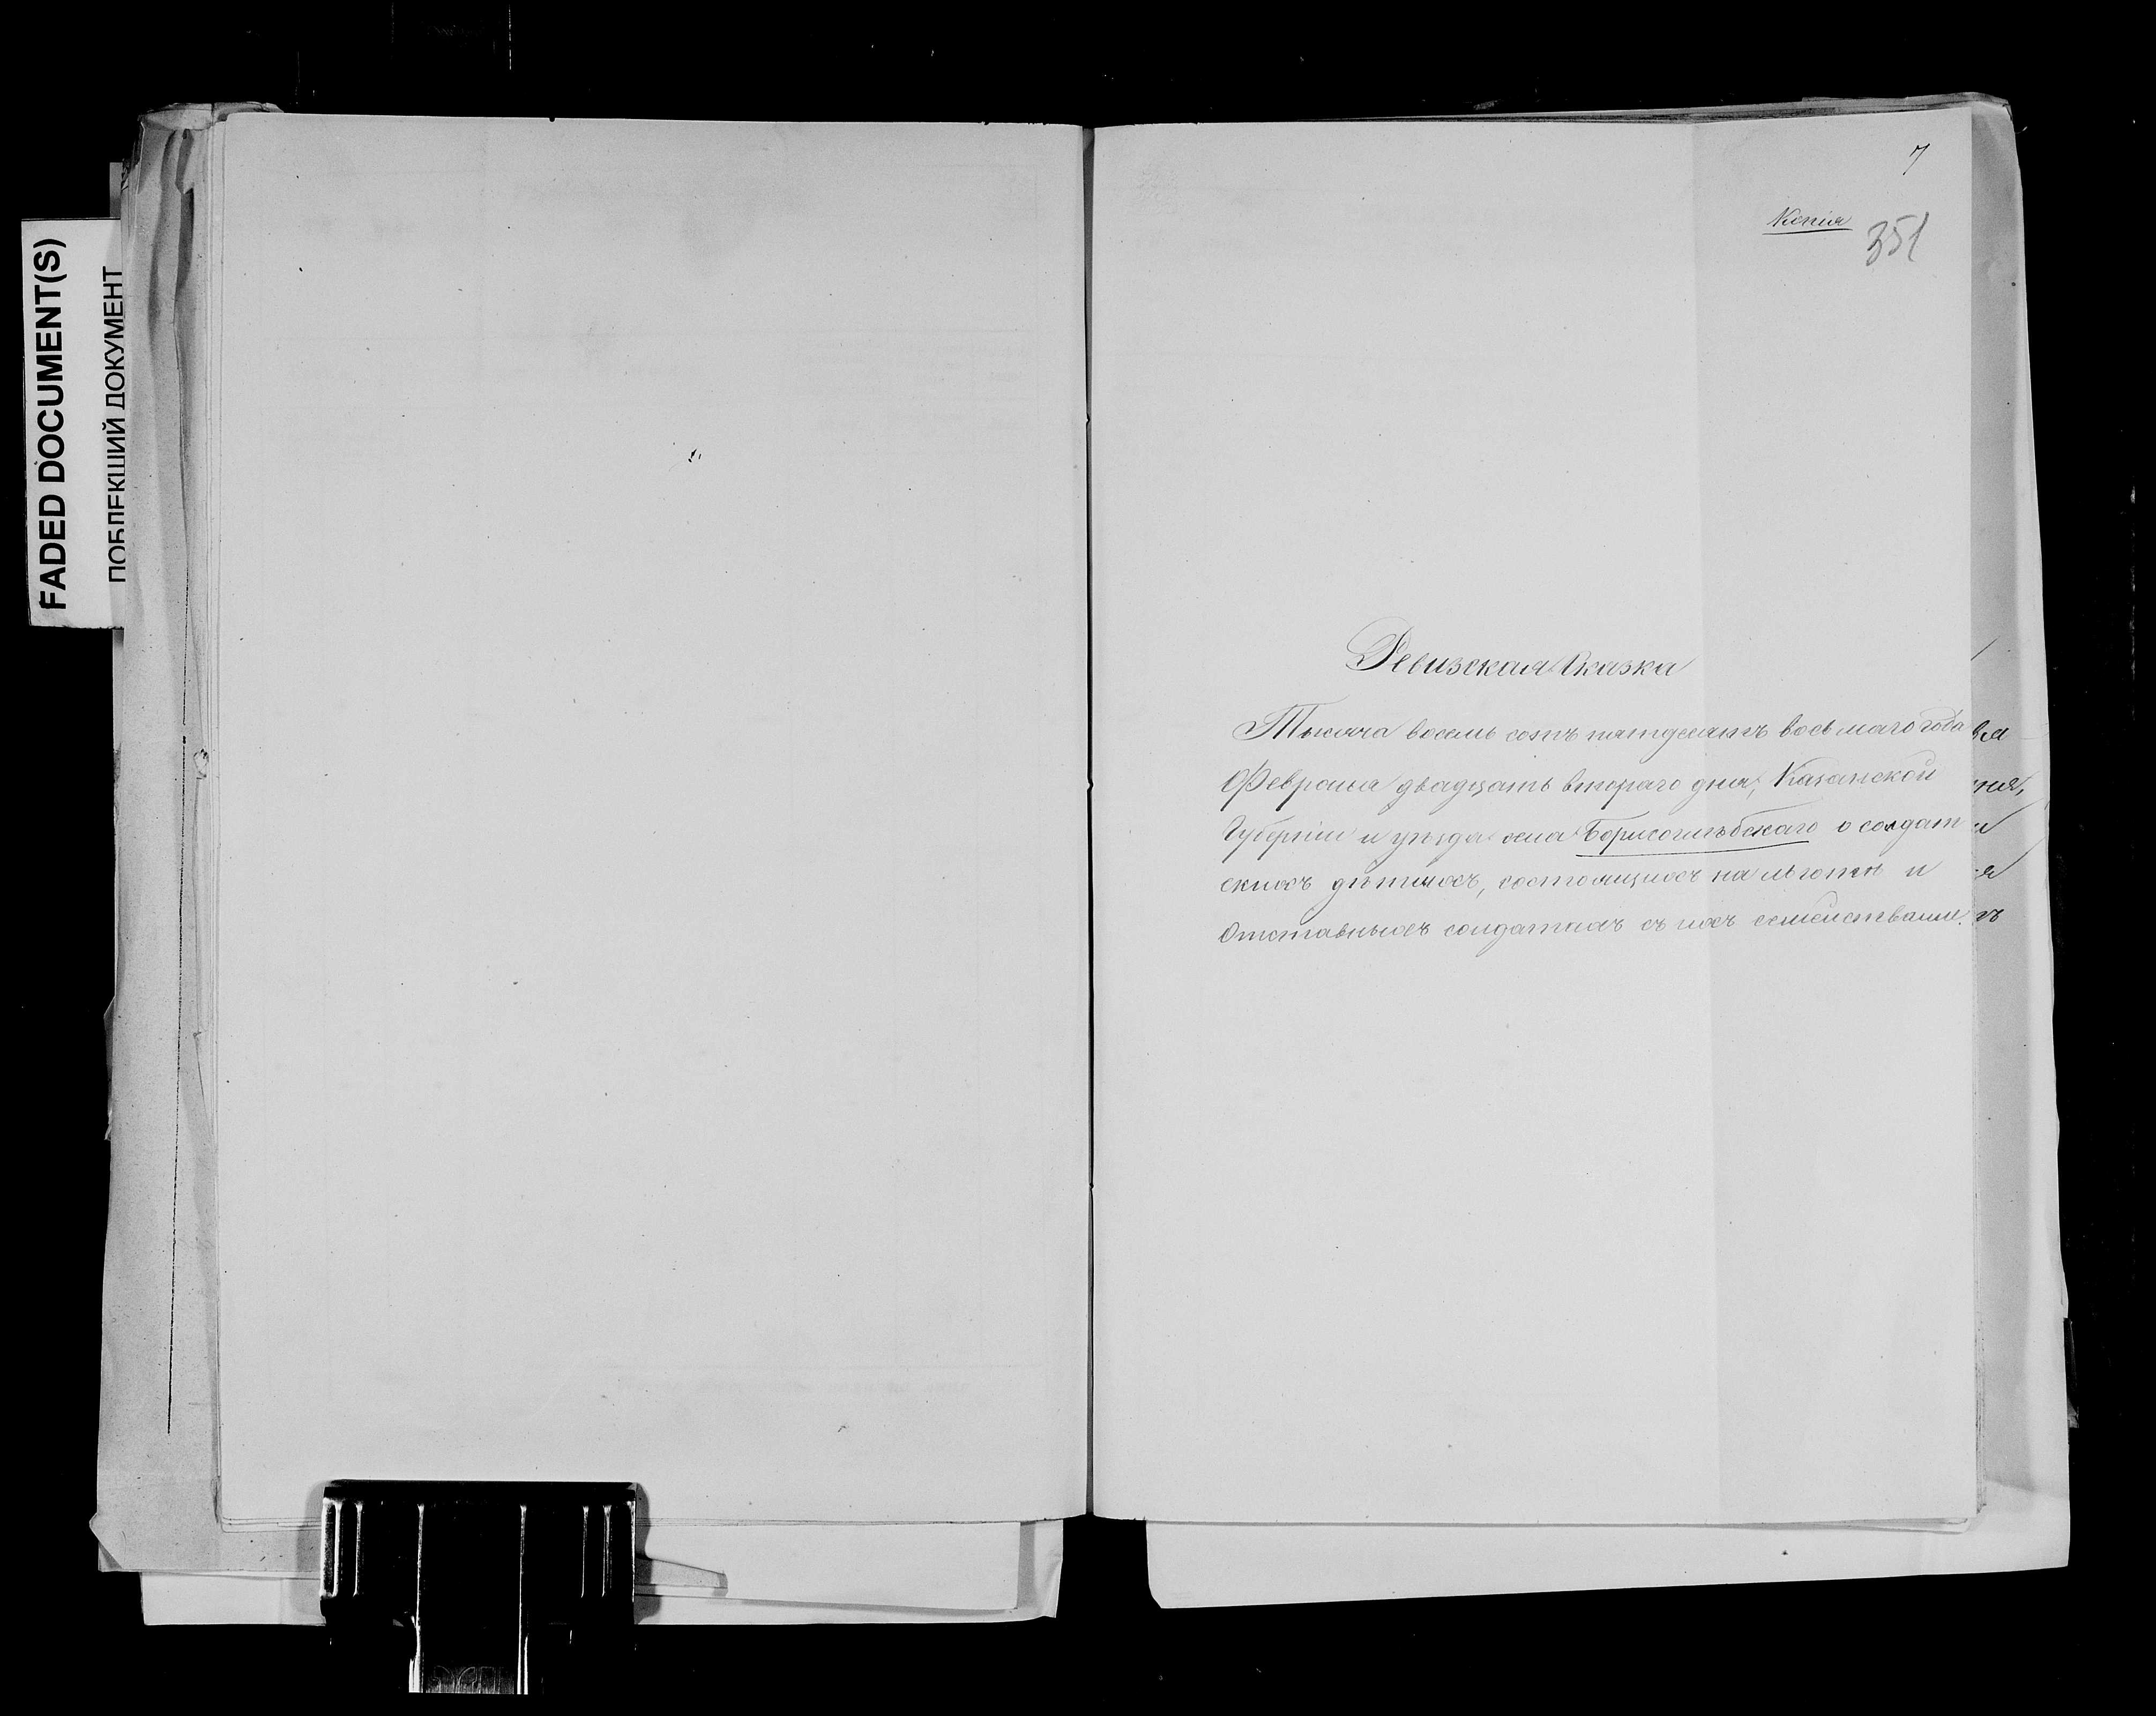 FADED DOCUMENT(S)
ПОБЛЕКШИЙ ДОКУМЕНТ
7
Копія
351
Ревизская Сказка
Тысяча восемь сотъ пятдесятъ восьмаго года
Февраля двадцать втораго дня, Казанской
Губерніи и уѣзда села Борисоглѣбскаго о солдат
скихъ дѣтяхъ, состоящихъ на льготѣ и
Отставныхъ солдатахъ съ ихъ семействами.